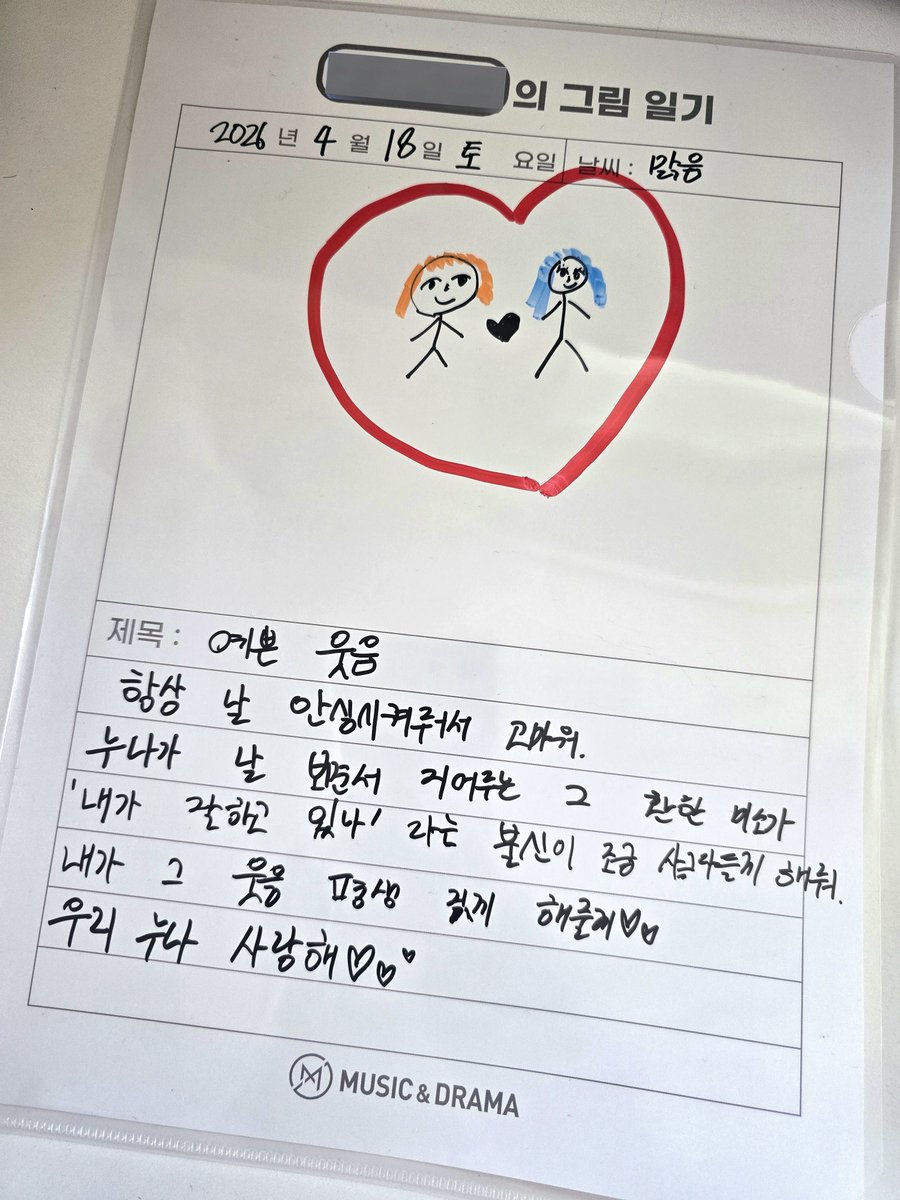 의 그림 일기
2026 년 4 월 18 일 토 요일 날씨 : 맑음
제목 : 예쁜 웃음
항상 날 안심시켜줘서 고마워.
누나가 날 보면서 지어주는 그 환한 미소가
'내가 잘하고 있나' 라는 불신이 조금 사그라들지 해줘.
내가 그 웃음 평생 짓게 해줄게♡♡
우리 누나 사랑해♡♡♡
MUSIC & DRAMA